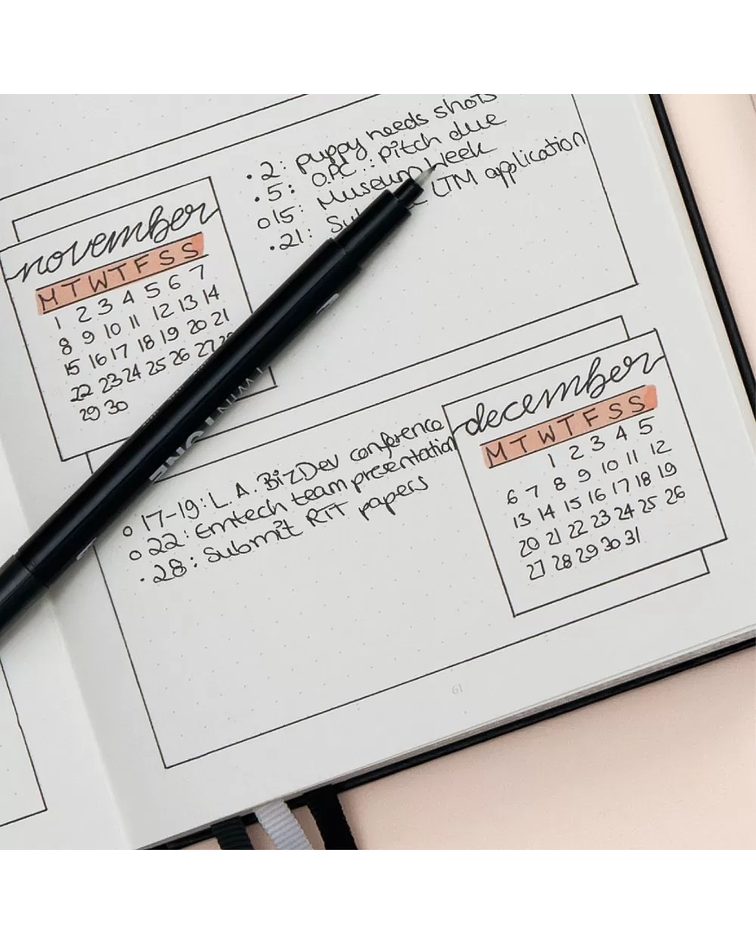 • 2: puppy needs shots
• 5: O.P.C.: pitch due
o 15: Museum Week
• 21: LTM application
november
M T W T F S S
1 2 3 4 5 6 7
8 9 10 11 12 13 14
15 16 17 18 19 20 21
22 23 24 25 26 27 28
29 30
TWIN
december
M T W T F S S
1 2 3 4 5
6 7 8 9 10 11 12
13 14 15 16 17 18 19
20 21 22 23 24 25 26
27 28 29 30 31
o 17-19: L.A. BizDev conference
o 22: Emtech team presentation
• 28: Submit RTT papers
61